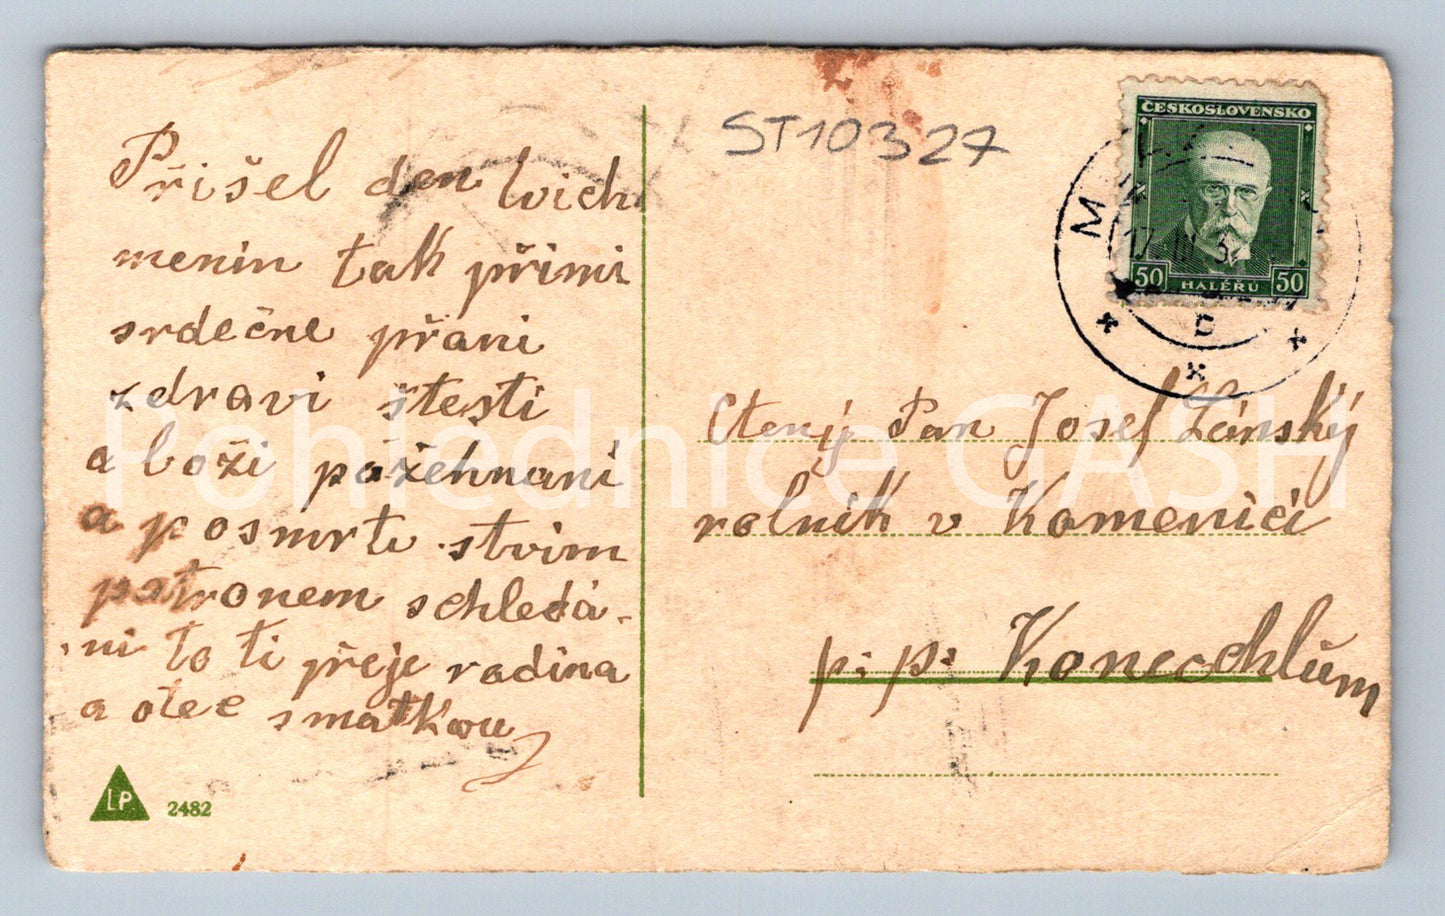 Přišel den tvich
menin tak přimi
srdečne přani
zdravi štesti
a boži požehnani
a posmrti stvim
patronem schledá-
ni to ti přeje rodina
a otec smatkou
LP 2482
ST10327
ČESKOSLOVENSKO
50 HALÉŘŮ 50
M
17.III.3
c
Ctený Pan Josef Lánský
rolnik v Kamenici
p. p. Konecchlům
Pohlednice GASH